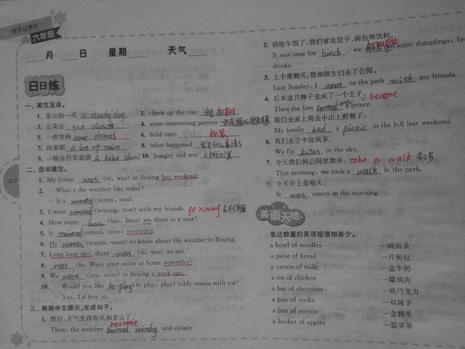 六年级
月 日 星期 天气
日日练
一、英汉互译。
1. 多云的一天 cloudy day
2. climb up the tree
3. 五朵云 five clouds
4. some interesting parrots
5. 一些饮料 some drinks
6. hold onto
7. 许多雨 a lot of rain
8. what happened
9. 一场自行车表演 a bike show
10. hungry and wet
二、选词填空。
1. My father was (is, was) in Beijing last weekend.
2. — What's the weather like today?
— It's sunny (sunny, sun).
3. I went rowing (rowing, row) with my friends. go rowing 去划船
4. How many bees (bee, bees) are there in your
5. It rained (rained, rains) yesterday.
6. He wants (wants, want) to know about the weather in Beijing.
7. Long long ago, there was (is, was) an ant.
8. Was (Is, Was) your sister at home yesterday?
9. We were (are, were) in Beijing a week ago.
10. — Would you like to play (to play, play) table tennis with me?
— Yes, I'd love to.
三、根据中文提示,完成句子。
1. 然后,天气变得有风和多云了。
become
Then, the weather turned windy and cloudy.
2. 该吃午饭了,我们拿出饺子、面包和饮料。
brought
It was time for lunch, we some dumplings,
drinks.
3. 上个星期天,我和朋友们去了公园。
Last Sunday, I went to the park with my friends.
4. 后来这只狮子变成了一个王子。 become
Then the lion prince.
5. 我们全家上周去小山上野餐了。
My family had a picnic in the hill last weekend.
6. 我们在空中放风筝。
We fly kites in the sky.
7. 今天我们到公园里散步。 take a walk 散步
This morning, we took a walk in the park.
8. 今天早上是晴天。
It was sunny in the morning.
英语天地
表达数量的英语短语知多少。
a bowl of noodles 一碗面条
a piece of bread 一片面包
a carton of milk 一盒牛奶
a tin of chicken 一罐鸡肉
a bar of chocolate 一块巧克力
a pair of socks 一双袜子
a box of sweets 一盒糖果
a basket of apples 一篮苹果